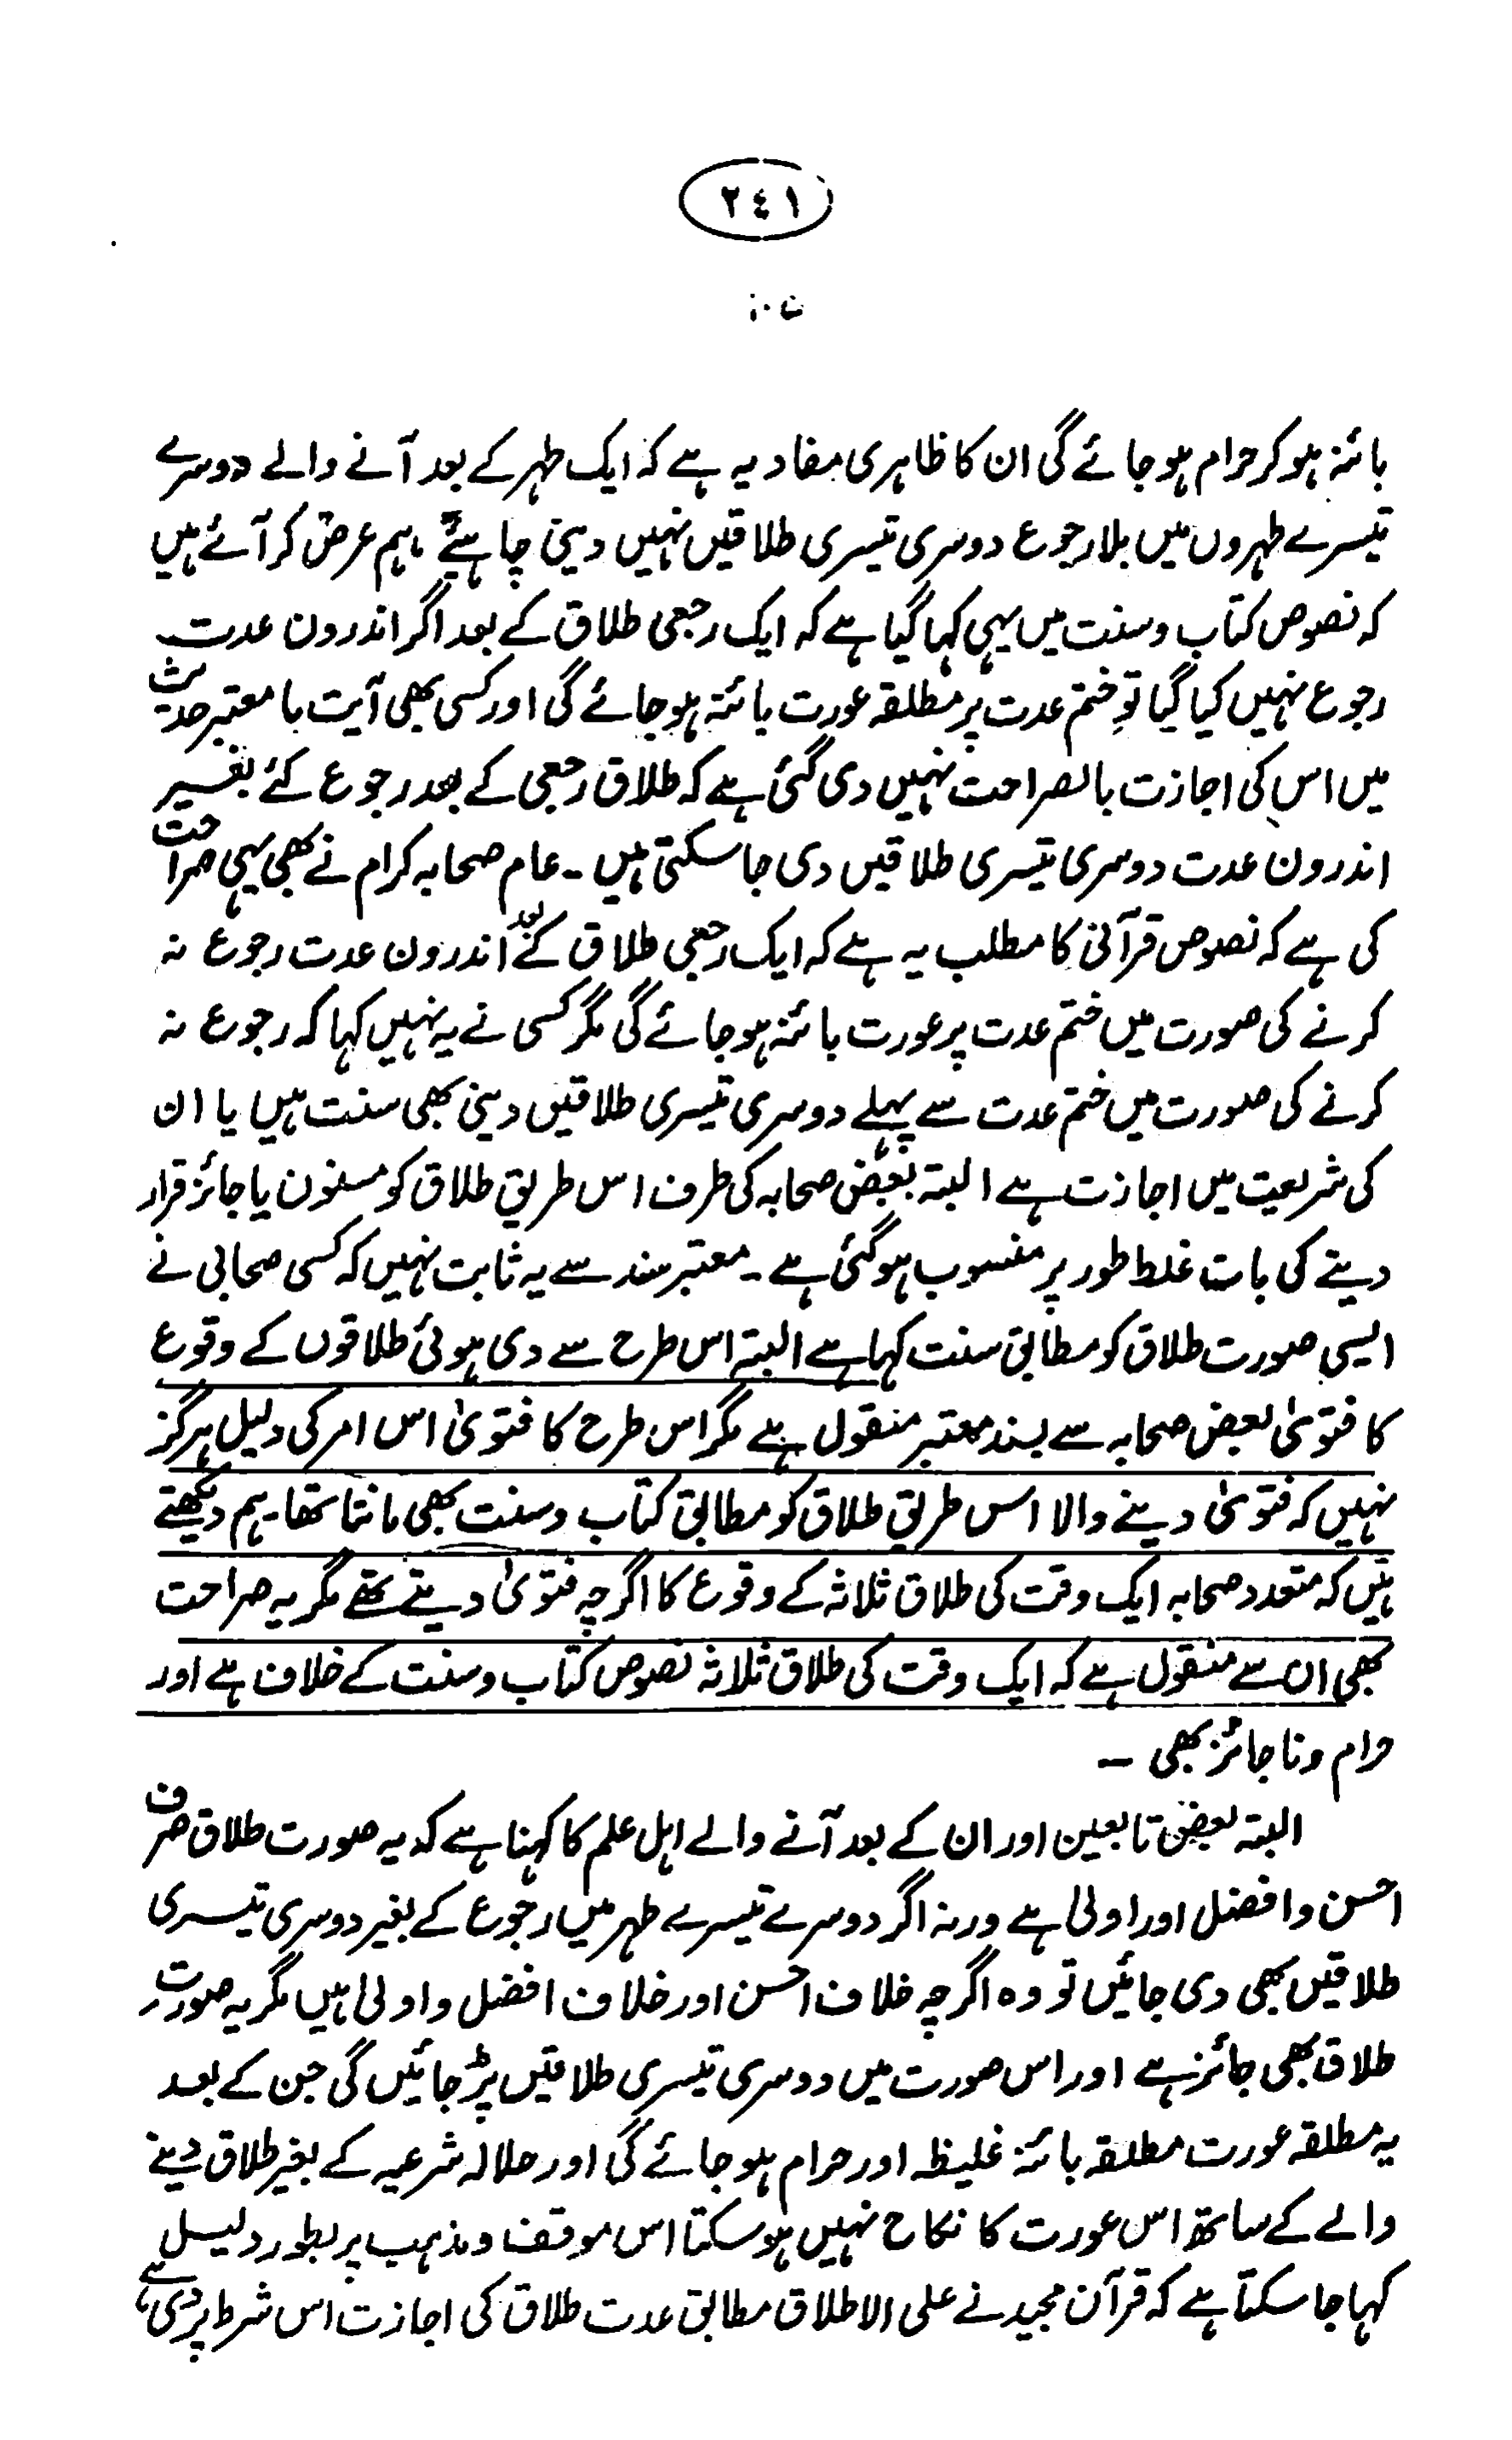 ٢٤١
بائنہ ہو کر حرام ہو جائے گی ان کا ظاہری مفاد یہ ہے کہ ایک طہر کے بعد آنے والے دوسرے
تیسرے طہروں میں بلا رجوع دوسری تیسری طلاقیں نہیں دینی چاہئے، ہم عرض کر آئے ہیں
کہ نصوص کتاب وسنت میں یہی کہا گیا ہے کہ ایک رجعی طلاق کے بعد اگر اندرون عدت
رجوع نہیں کیا گیا تو ختم عدت پر مطلقہ عورت بائنہ ہو جائے گی اور کسی بھی آیت یا معتبر حدیث
میں اس کی اجازت بالصراحت نہیں دی گئی ہے کہ طلاق رجعی کے بعد رجوع کئے بغیر
اندرون عدت دوسری تیسری طلاقیں دی جا سکتی ہیں ۔ عام صحابہ کرام نے بھی یہی صراحت
کی ہے کہ نصوص قرآنی کا مطلب یہ ہے کہ ایک رجعی طلاق کے بعد اندرون عدت رجوع نہ
کرنے کی صورت میں ختم عدت پر عورت بائنہ ہو جائے گی مگر کسی نے یہ نہیں کہا کہ رجوع نہ
کرنے کی صورت میں ختم عدت سے پہلے دوسری تیسری طلاقیں دینی بھی سنت ہیں یا ان
کی شریعت میں اجازت ہے البتہ بعض صحابہ کی طرف اس طریق طلاق کو مسنون یا جائز قرار
دینے کی بات غلط طور پر منسوب ہو گئی ہے ۔ معتبر سند سے یہ ثابت نہیں کہ کسی صحابی نے
ایسی صورت طلاق کو مطابق سنت کہا ہے البتہ اس طرح سے دی ہوئی طلاقوں کے وقوع
کا فتویٰ بعض صحابہ سے بسند معتبر منقول ہے مگر اس طرح کا فتویٰ اس امر کی دلیل ہرگز
نہیں کہ فتویٰ دینے والا اس طریق طلاق کو مطابق کتاب وسنت بھی مانتا تھا ۔ ہم دیکھتے
ہیں کہ متعدد صحابہ ایک وقت کی طلاق ثلاثہ کے وقوع کا اگرچہ فتویٰ دیتے تھے مگر یہ صراحت
بھی ان سے منقول ہے کہ ایک وقت کی طلاق ثلاثہ نصوص کتاب وسنت کے خلاف ہے اور
حرام وناجائز بھی ۔
البتہ بعض تابعین اور ان کے بعد آنے والے اہل علم کا کہنا ہے کہ یہ صورت طلاق صرف
احسن وافضل اور اولیٰ ہے ورنہ اگر دوسرے تیسرے طہر میں رجوع کے بغیر دوسری تیسری
طلاقیں بھی دی جائیں تو وہ اگرچہ خلاف احسن اور خلاف افضل واولیٰ ہیں مگر یہ صورت
طلاق بھی جائز ہے اور اس صورت میں دوسری تیسری طلاقیں پڑ جائیں گی جن کے بعد
یہ مطلقہ عورت مطلقہ بائنہ غلیظہ اور حرام ہو جائے گی اور حلالہ شرعیہ کے بغیر طلاق دینے
والے کے ساتھ اس عورت کا نکاح نہیں ہو سکتا اس موقف ومذہب پر بطور دلیل
کہا جا سکتا ہے کہ قرآن مجید نے علی الاطلاق مطابق عدت طلاق کی اجازت اس شرط پر دی ہے